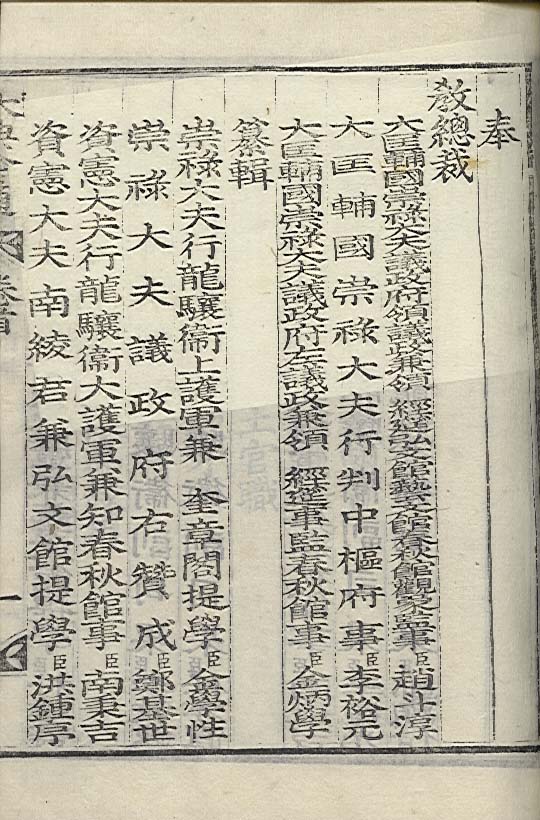 奉
教總裁
大匡輔國崇祿大夫議政府領議政兼領 經筵弘文館藝文館春秋館觀象監事臣趙斗淳
大匡輔國崇祿大夫行判中樞府事臣李裕元
大匡輔國崇祿大夫議政府左議政兼領 經筵事監春秋館事臣金炳學
纂輯
崇祿大夫行龍驤衛上護軍兼 奎章閣提學臣金學性
崇祿大夫議政府右贊成臣鄭基世
資憲大夫行龍驤衛大護軍兼知春秋館事臣南秉吉
資憲大夫南綾君兼弘文館提學臣洪鍾序
大典會通 卷首 一